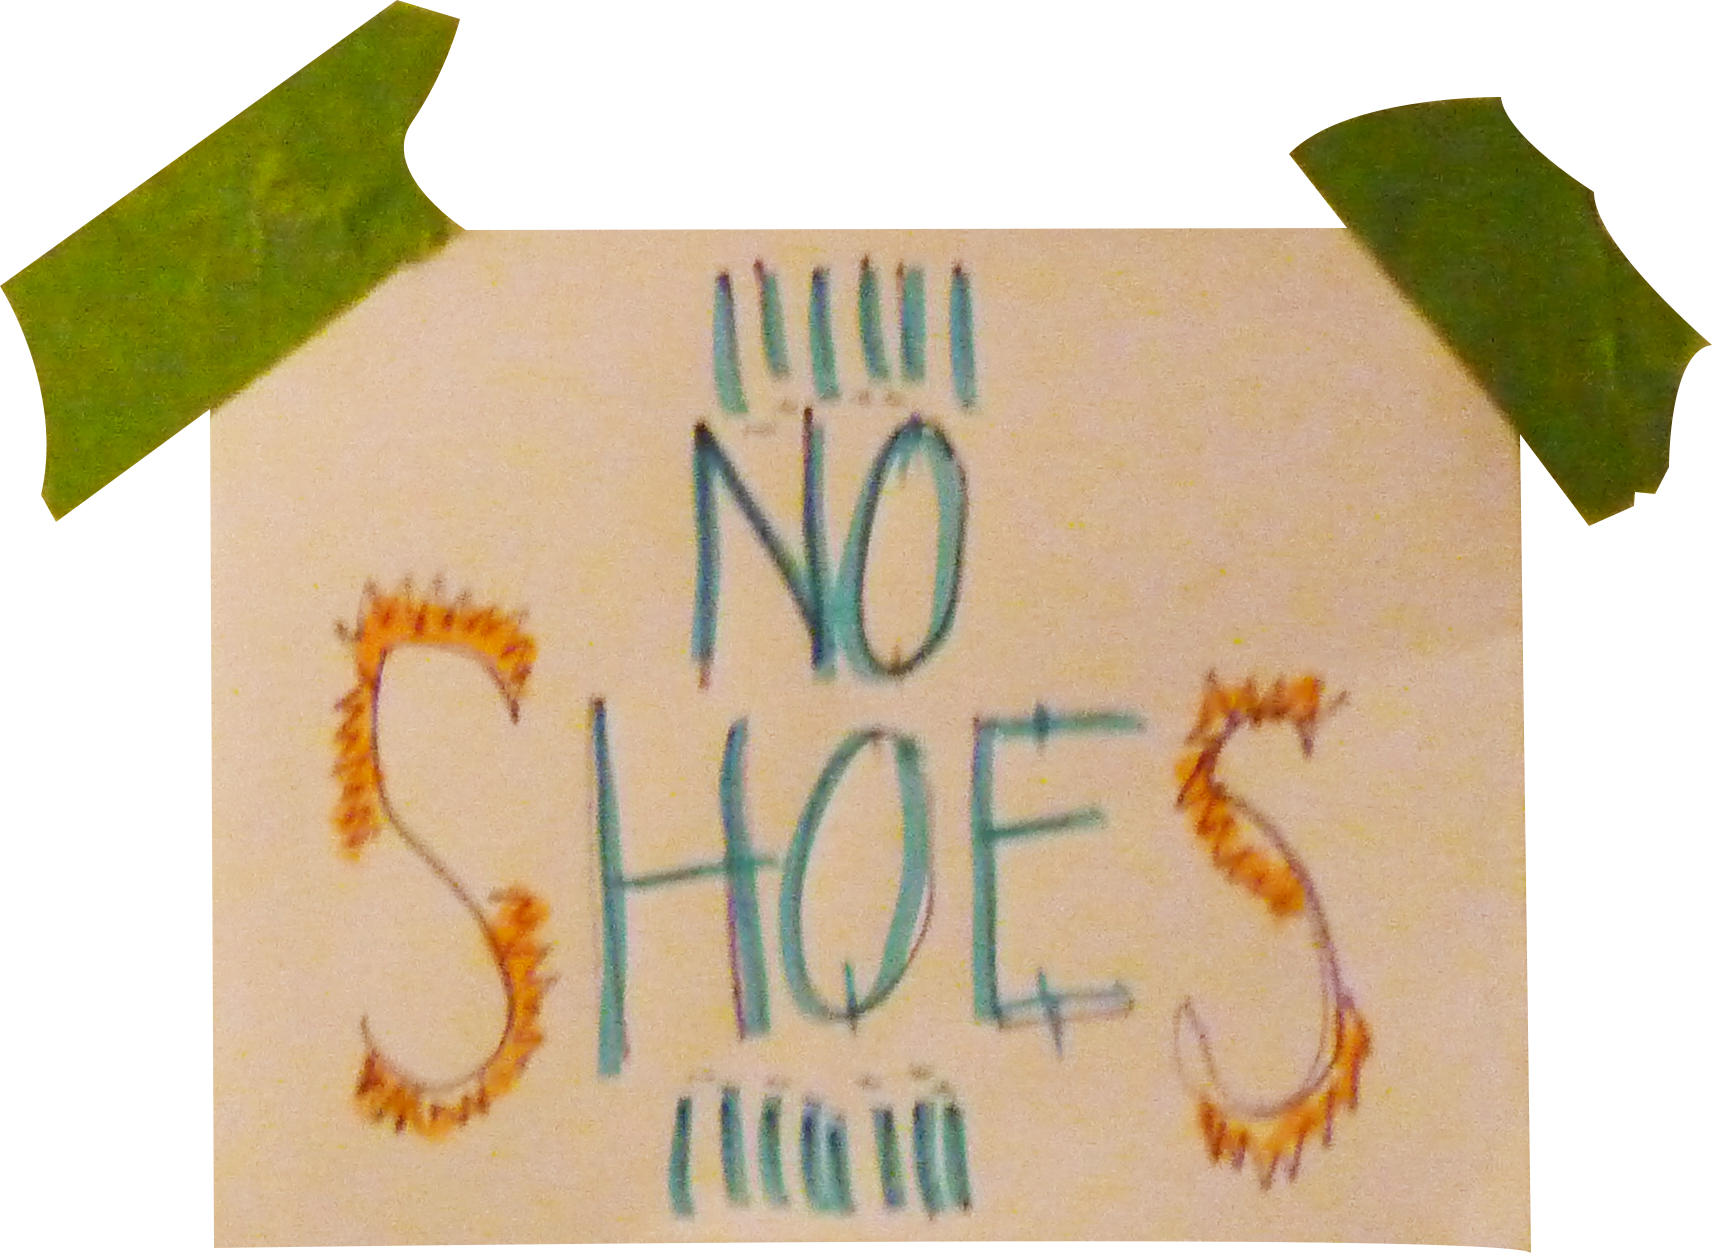 NO
SHOES